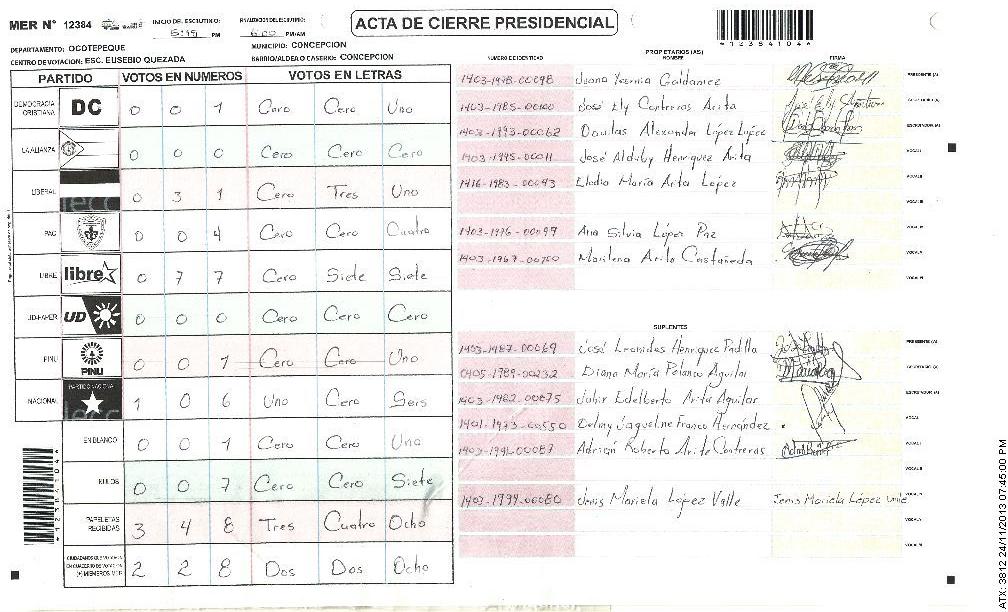 MER N° 12384
INICIO DEL ESCRUTINIO: 5:19 PM
FINALIZACION ESCRUTINIO: 6:00 PM/AM
ACTA DE CIERRE PRESIDENCIAL
*12384104*
DEPARTAMENTO: OCOTEPEQUE
MUNICIPIO: CONCEPCION
CENTRO DE VOTACION: ESC. EUSEBIO QUEZADA
BARRIO/ALDEA O CASERIO: CONCEPCION
PARTIDO VOTOS EN NUMEROS VOTOS EN LETRAS
DEMOCRACIA CRISTIANA DC 0 0 1 Cero Cero Uno
LA ALIANZA 0 0 0 Cero Cero Cero
LIBERAL 0 3 1 Cero Tres Uno
PAC 0 0 4 Cero Cero Cuatro
LIBRE libre 0 7 7 Cero Siete Siete
UD-FAPER UD 0 0 0 Cero Cero Cero
PINU PINU 0 0 1 Cero Cero Uno
NACIONAL PARTIDO NACIONAL 1 0 6 Uno Cero Seis
EN BLANCO 0 0 1 Cero Cero Uno
NULOS 0 0 7 Cero Cero Siete
PAPELETAS RECIBIDAS 3 4 8 Tres Cuatro Ocho
CIUDADANOS QUE VOTARON EN CUADERNO DE VOTACION (+) MIEMBROS MER 2 2 8 Dos Dos Ocho
*12384104*
PROPIETARIOS (AS)
NUMERO DE IDENTIDAD NOMBRE FIRMA
1403-1978-00098 Juana Yesenia Galdamez PRESIDENTE (A)
1403-1985-00100 José Ely Contreras Arita SECRETARIO (A)
1403-1993-00062 Douglas Alexander López López ESCRUTADOR (A)
1403-1995-00011 José Alduby Henriquez Arita VOCAL I
1416-1983-00093 Elodia María Arita López VOCAL II
VOCAL III
1403-1976-00099 Ana Silvia López Paz VOCAL IV
1403-1967-00700 Marilena Arita Castañeda VOCAL V
VOCAL VI
SUPLENTES
1403-1987-00069 José Leonidas Henriquez Padilla PRESIDENTE (A)
0405-1989-00232 Diana María Polanco Aguilar SECRETARIO (A)
1403-1982-00075 Jahir Edelberto Arita Aguilar ESCRUTADOR (A)
1401-1973-00550 Delmy Jaqueline Franco Hernández VOCAL I
1403-1991-00087 Adrián Roberto Arita Contreras VOCAL II
VOCAL III
1407-1994-00080 Jenis Mariela López Valle Jenis Mariela López Valle VOCAL IV
VOCAL V
VOCAL VI
ATX: 3812 24/11/2013 07:45:00 PM